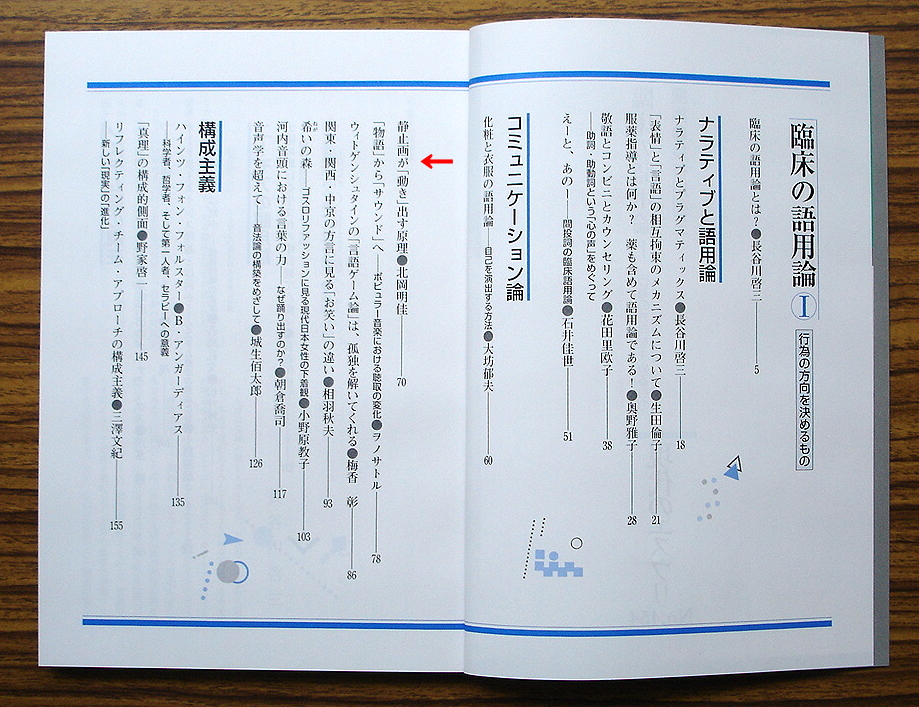 臨床の語用論Ⅰ
行為の方向を決めるもの
臨床の語用論とは?●長谷川啓三 5
ナラティブと語用論
ナラティブとプラグマティックス●長谷川啓三 18
「表情」と「言語」の相互拘束のメカニズムについて●生田倫子 21
服薬指導とは何か? 薬も含めて語用論である!●奥野雅子 28
敬語とコンビニとカウンセリング●花田里欧子 38
――助詞・助動詞という「心の声」をめぐって
えーと、あの―― 間投詞の臨床語用論●石井佳世 51
コミュニケーション論
化粧と衣服の語用論―― 自己を演出する方法●大坊郁夫 60
静止画が「動き」出す原理●北岡明佳 70
「物語」から「サウンド」へ―― ポピュラー音楽における聴取の変化●ヲノサトル 78
ウィトゲンシュタインの「言語ゲーム論」は、孤独を解いてくれる●梅香 彰 86
関東・関西・中京の方言に見る「お笑い」の違い●相羽秋夫 93
希いの森―― ゴスロリファッションに見る現代日本女性の下着観●小野原教子 103
河内音頭における言葉の力―― なぜ踊り出すのか?●朝倉喬司 117
音声学を超えて―― 音法論の構築をめざして●城生佰太郎 126
構成主義
ハインツ・フォン・フォルスター●B・アンガーディアス 135
――科学者、哲学者、そして第一人者、セラピーへの意義
「真理」の構成的側面●野家啓一 145
リフレクティング・チーム・アプローチの構成主義●三澤文紀 155
――新しい「現実」の「進化」